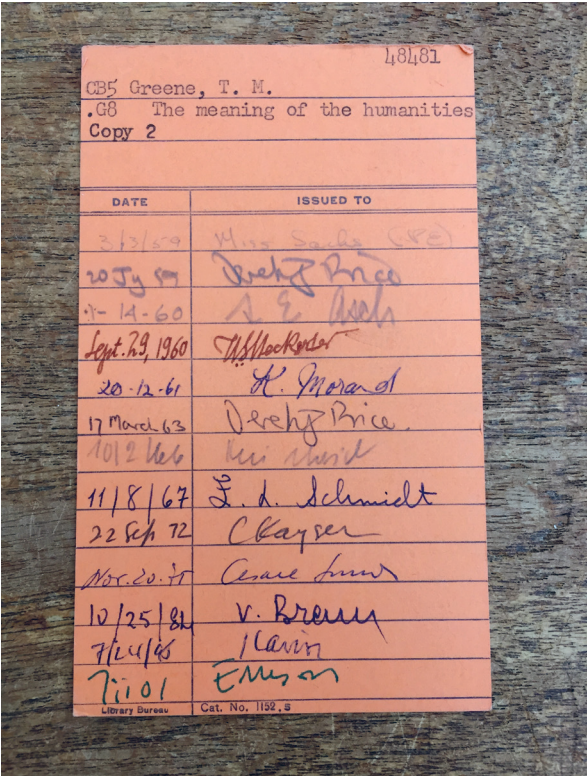 48481
CB5 Greene, T. M.
.G8 The meaning of the humanities
Copy 2
DATE ISSUED TO
3/3/59 Miss Sachs
20 Jy 59 Derek J Price
14-60 S E Asch
Sept. 29, 1960
20-12-61 K. Morand
17 March 63 Derek J Price.
10/2
11/8/67 L. Schmidt
22 Sep 72 C Kaysen
Nov. 20. 75 Cesare
10/25/82 V. Braun
Ellison
Library Bureau Cat. No. 1152.s